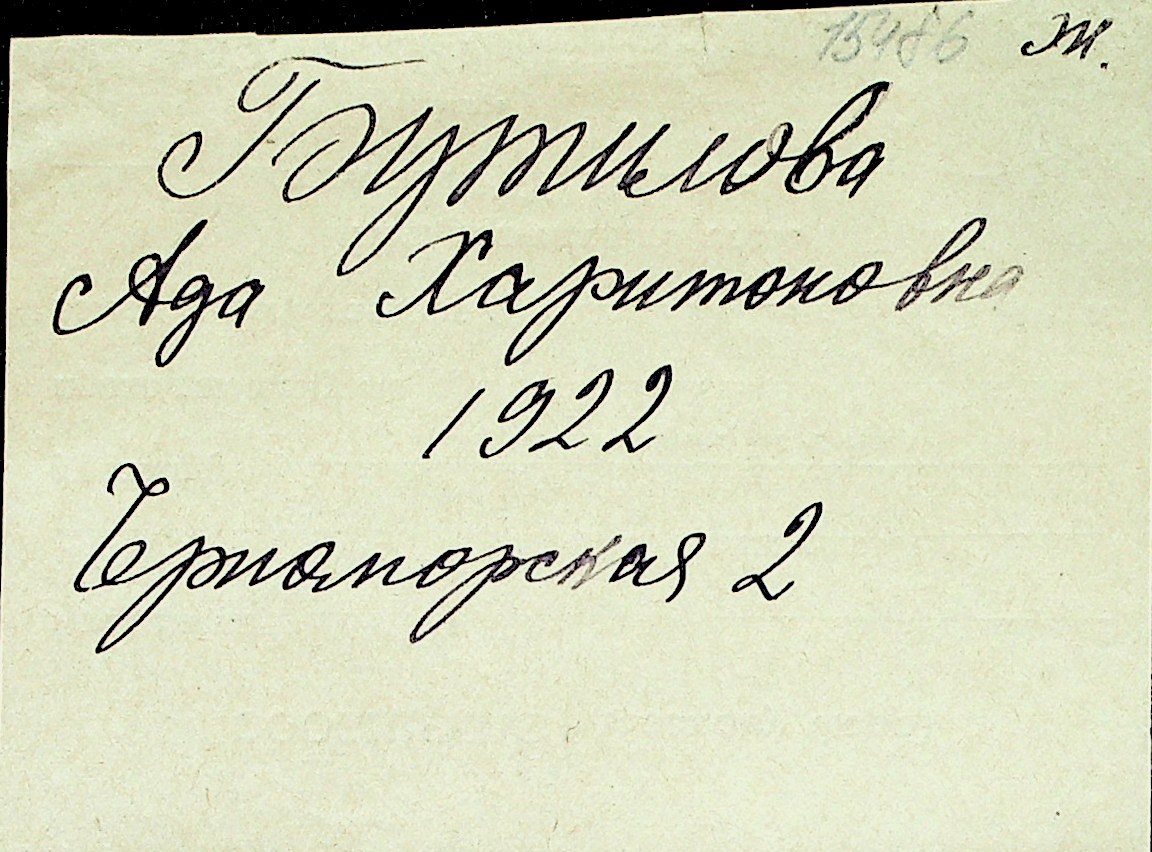 15486 ж.
Бутилова
Ада Харитоновна
1922
Черноморская 2